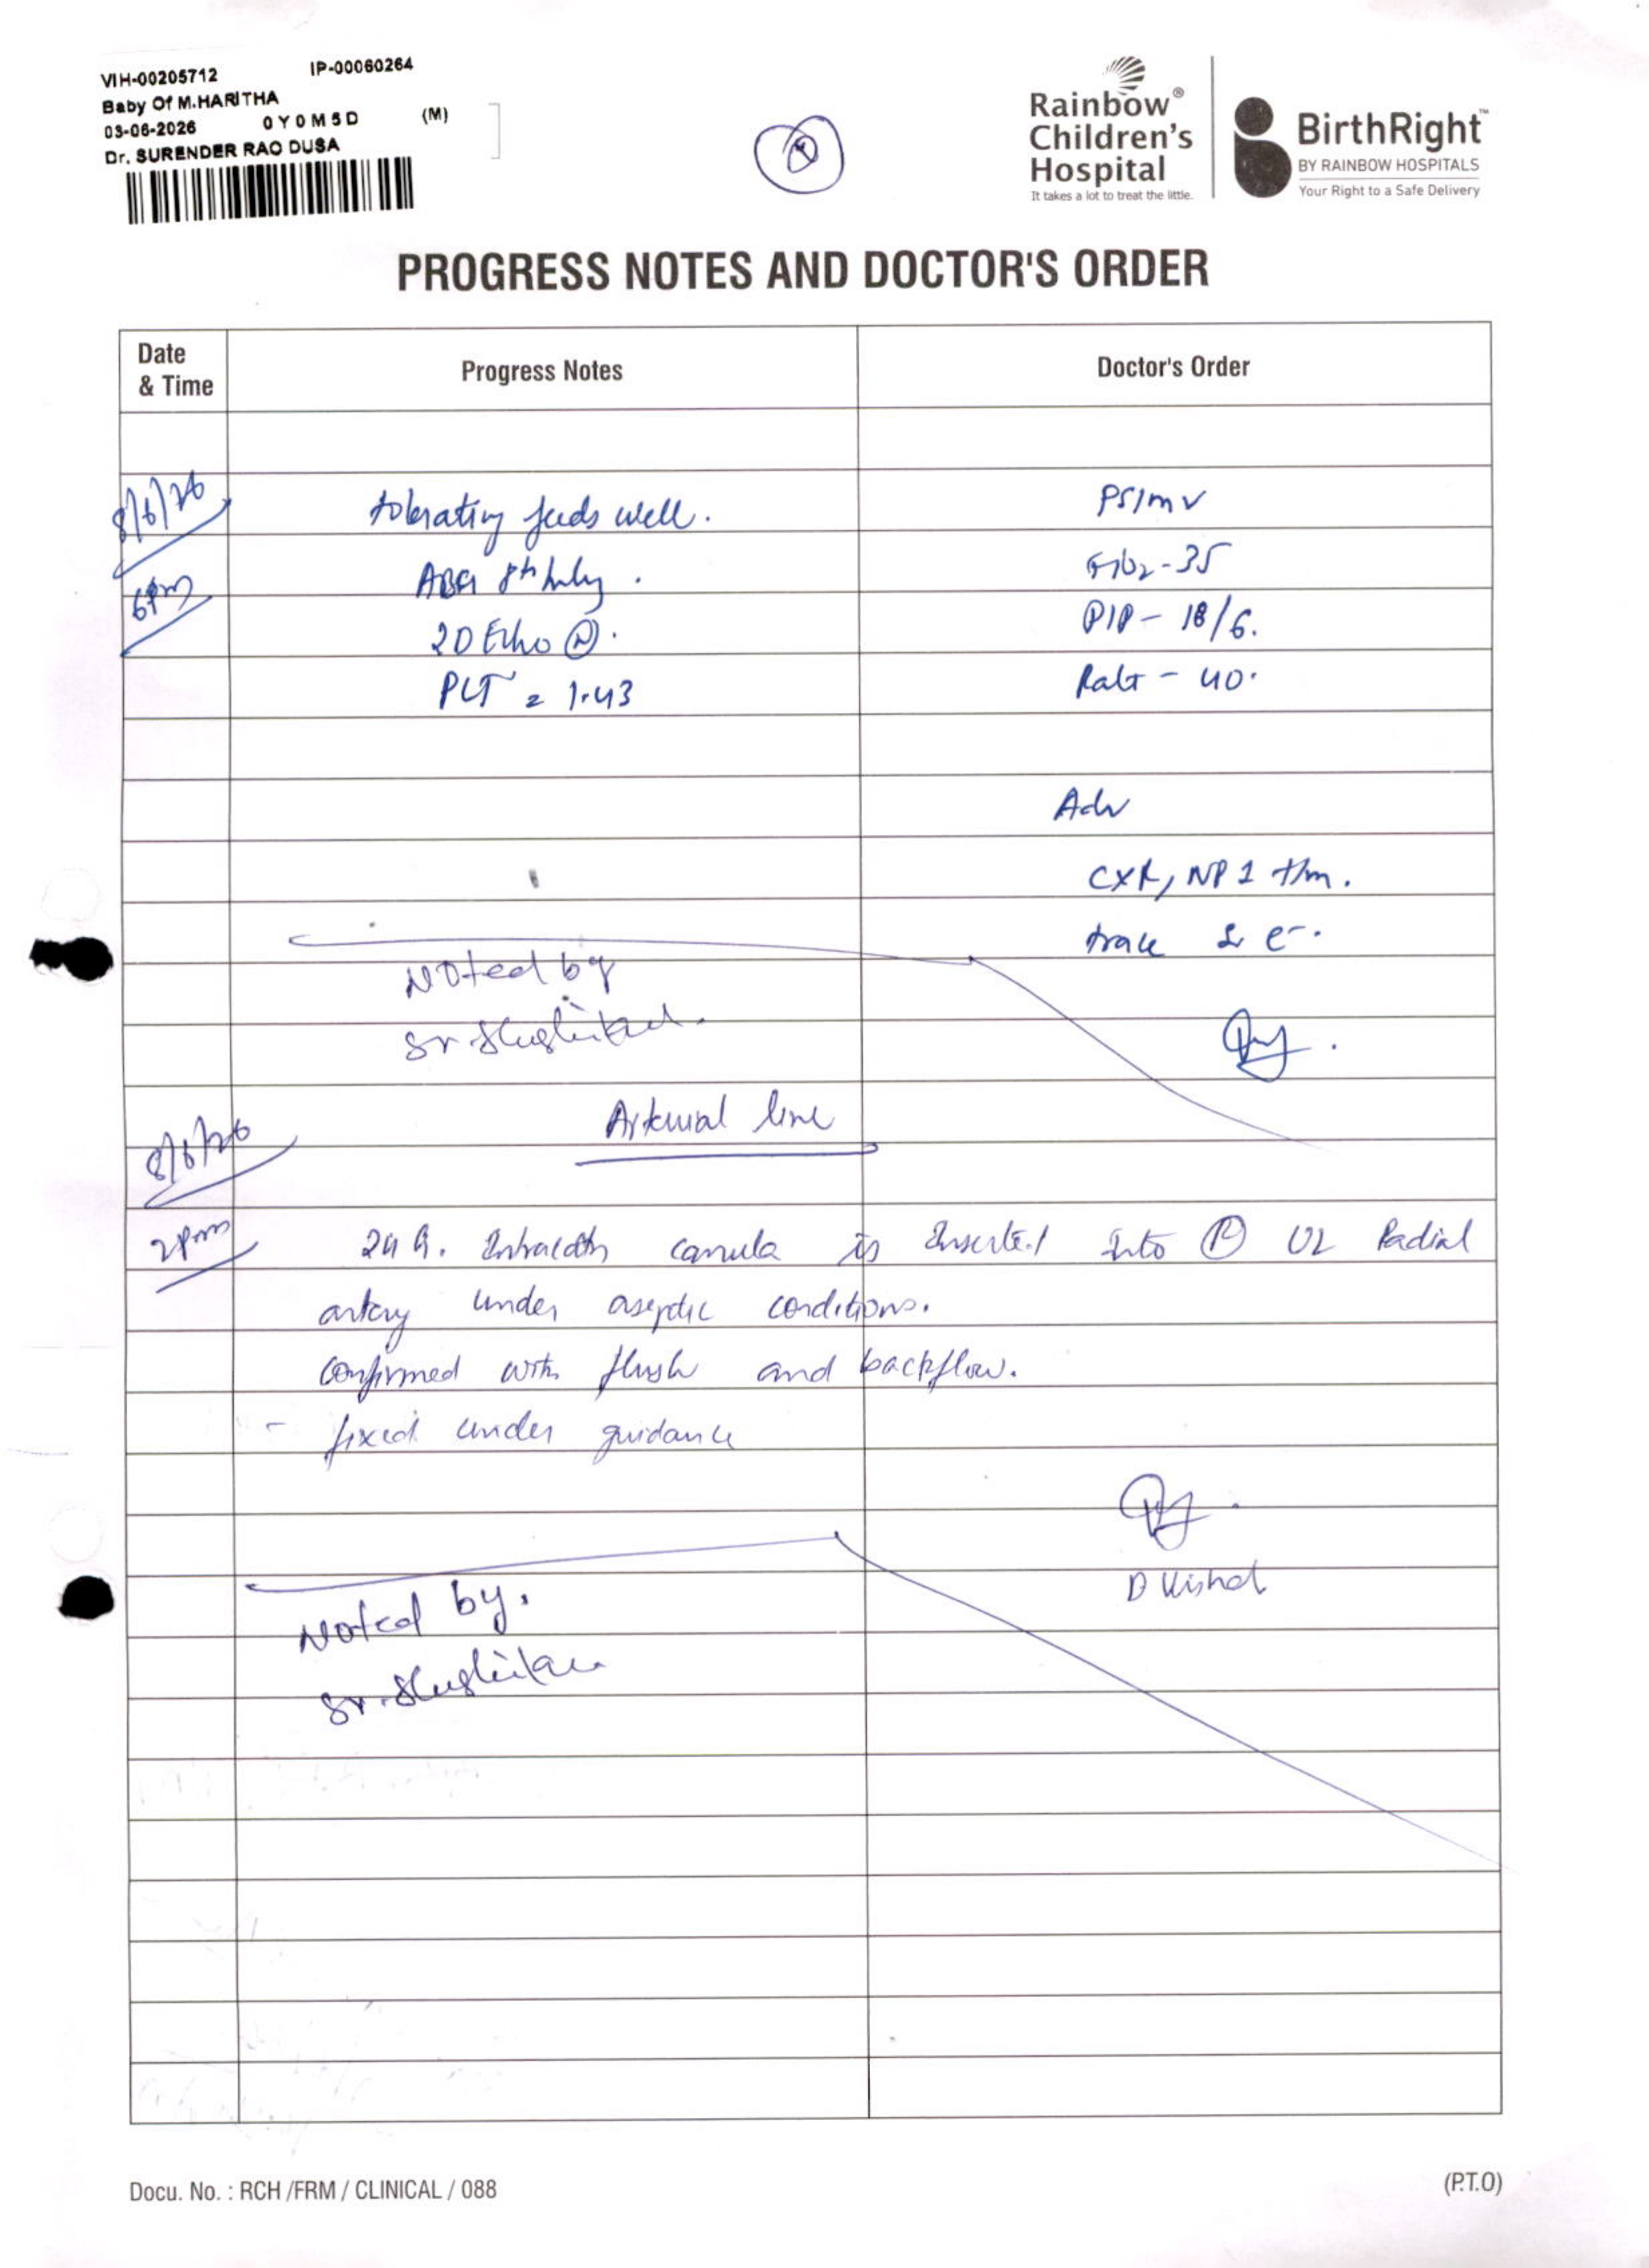 VIH-00205712 IP-00060264
Baby Of M.HARITHA
03-06-2026 0Y0M5D (M)
Dr. SURENDER RAO DUSA
Rainbow®
Children's
Hospital
It takes a lot to treat the little.
BirthRight™
BY RAINBOW HOSPITALS
Your Right to a Safe Delivery
PROGRESS NOTES AND DOCTOR'S ORDER
Date & Time Progress Notes Doctor's Order
8/6/26 tolerating feeds well. PSIMV
6pm ABG 8th hrly. FiO2-35
2D Echo Ⓝ. PIP - 18/6.
PLT = 1.43 Rate - 40.
Adv
CXR, NP1 t/m.
trace
Noted by
Sr.
8/6/26 Arterial line
2pm 24 G. canula is Inserted Into Ⓡ UL Radial
artery under aseptic conditions.
confirmed with flush and backflow.
- fixed under guidance
Noted by.
Sr.
Docu. No. : RCH /FRM / CLINICAL / 088 (P.T.O)